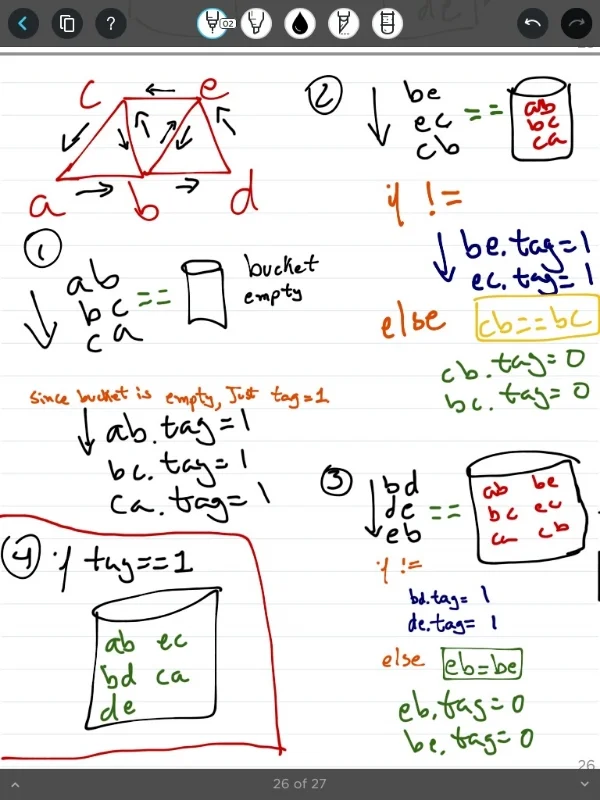 ?
02
c e
a b d
①
ab
bc == bucket
ca empty
since bucket is empty, Just tag=1
ab.tag=1
bc.tag=1
ca.tag=1
②
be
ec == ab
cb bc
ca
if !=
be.tag=1
ec.tag=1
else cb==bc
cb.tag=0
bc.tag=0
③
bd
de ==
eb
ab be
bc ec
ca cb
if !=
bd.tag= 1
de.tag= 1
else eb=be
eb.tag=0
be.tag=0
④ if tag==1
ab ec
bd ca
de
26
26 of 27